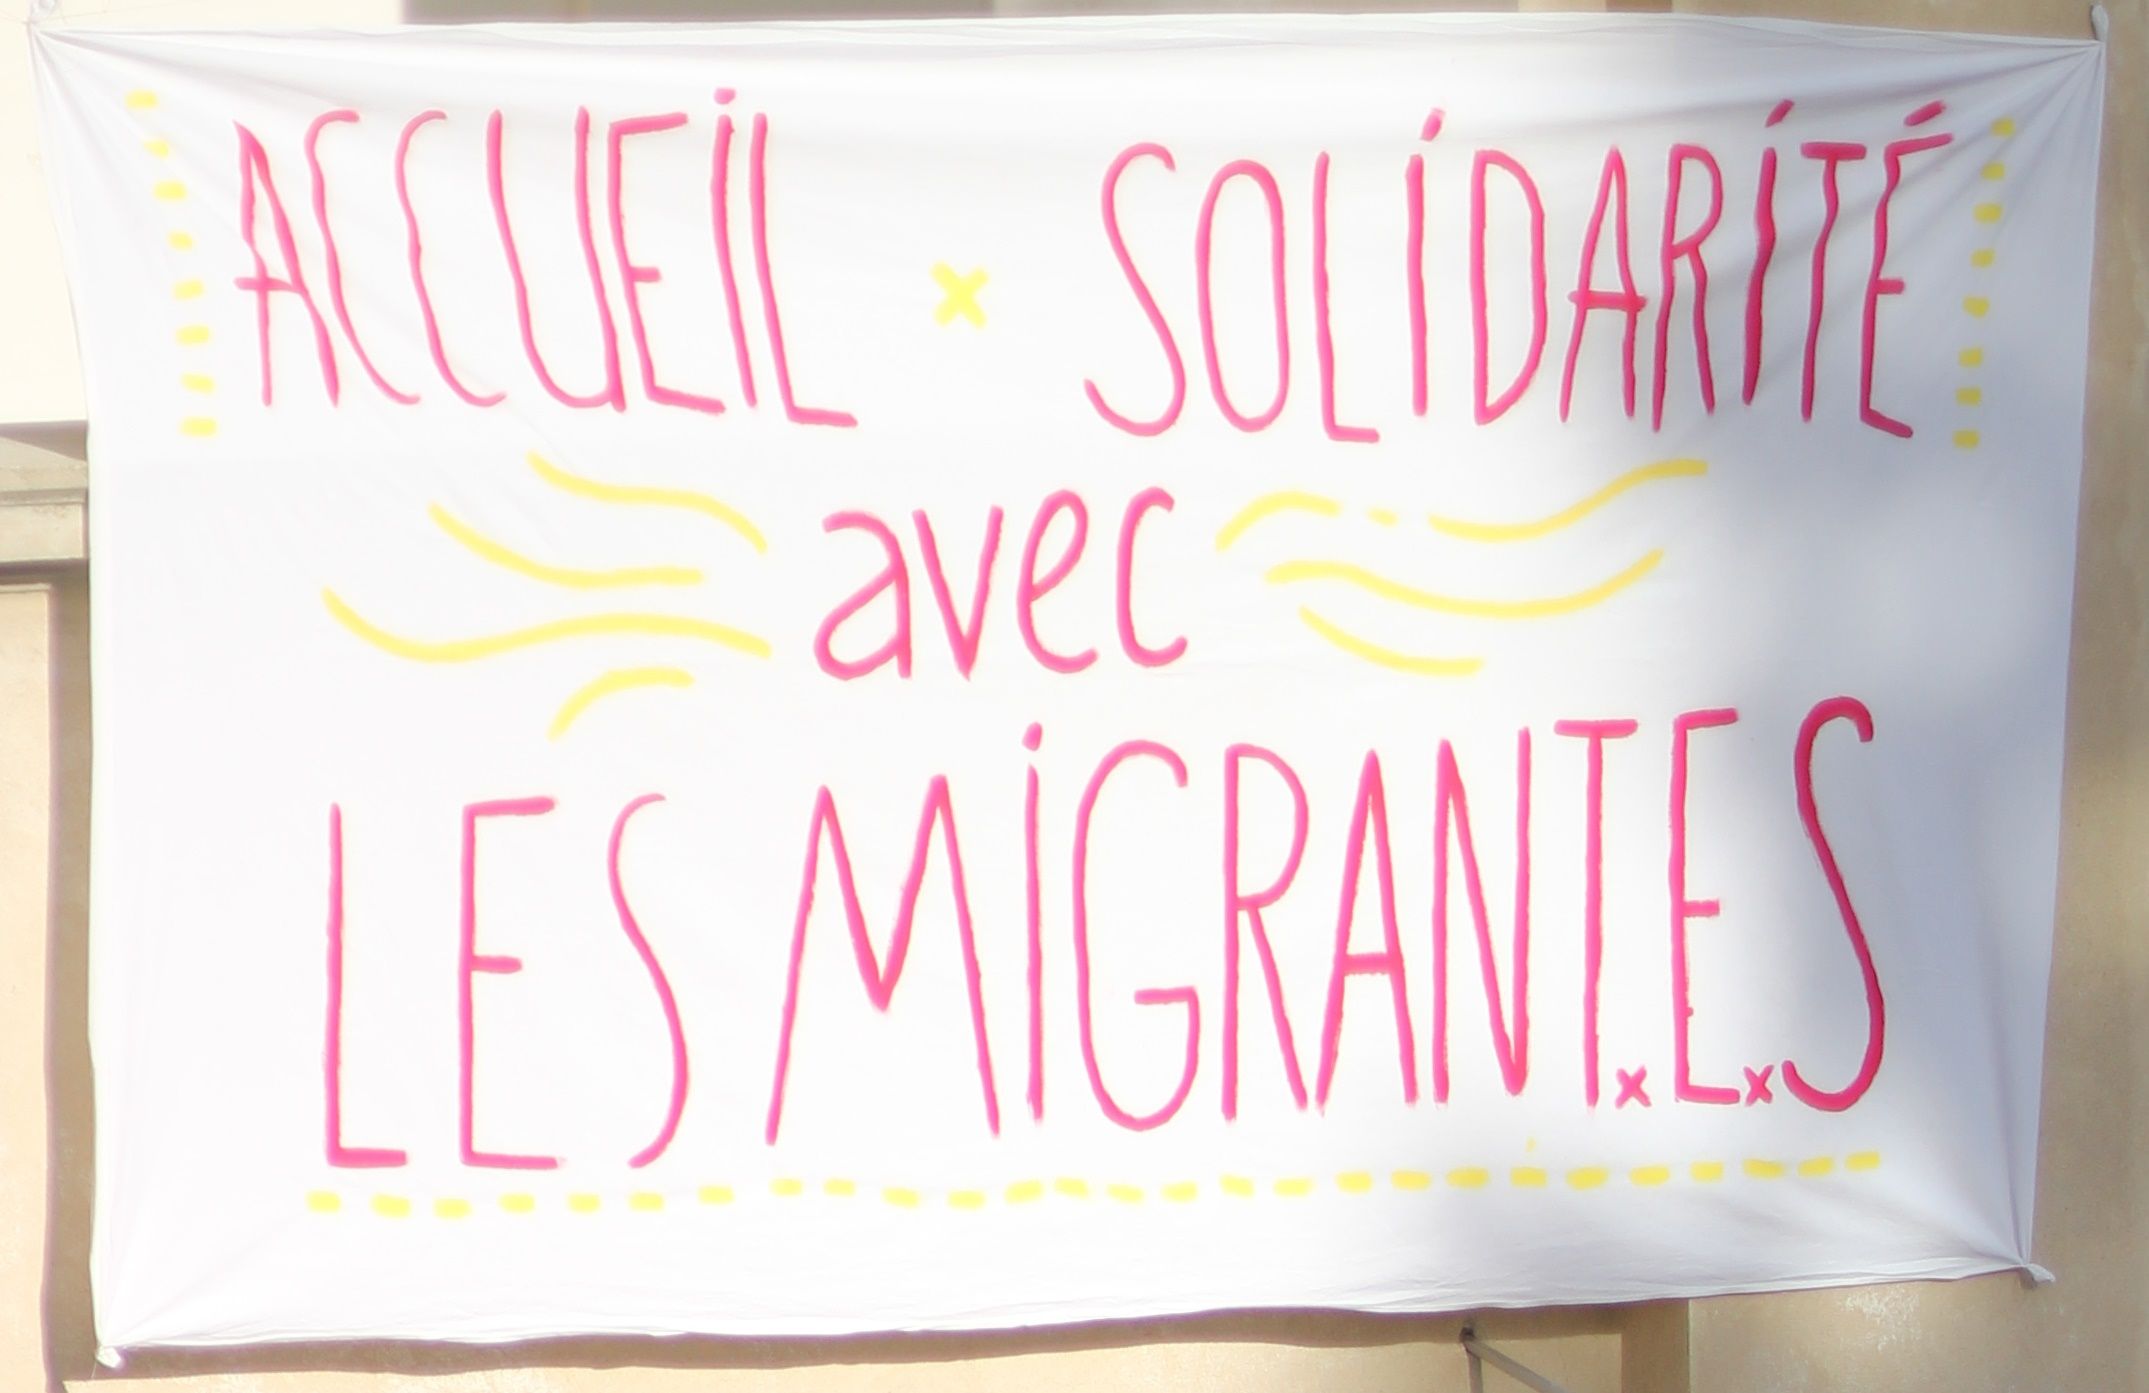 ACCUEIL x SOLIDARITÉ
avec
LES MIGRANTxExS